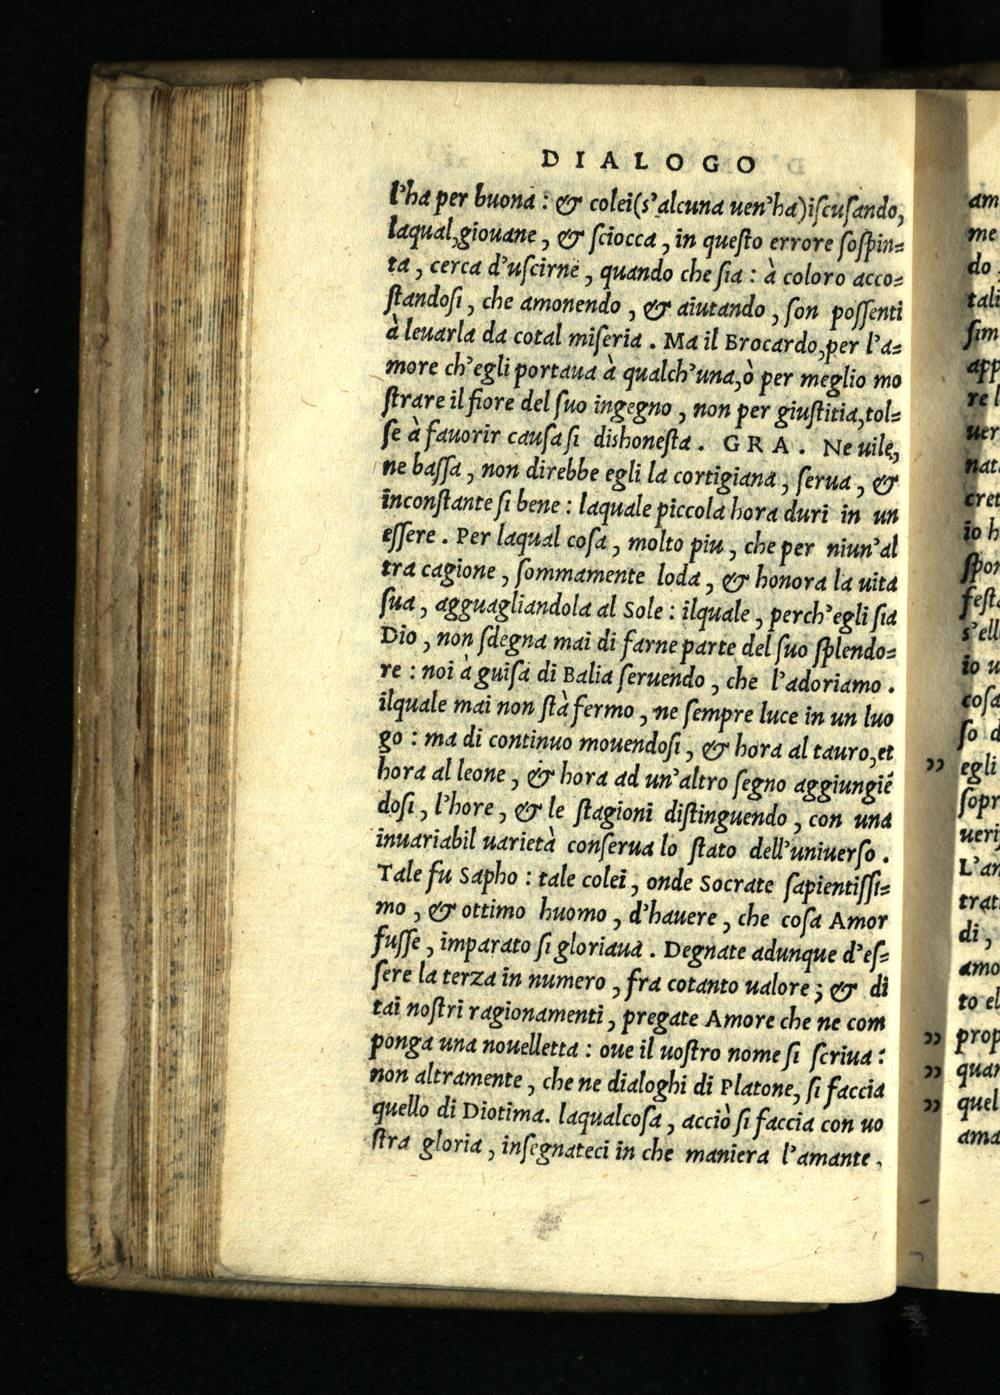 DIALOGO
l'ha per buona : & colei (s'alcuna uen'ha) iſcuſando,
laqual, giouane, & ſciocca, in queſto errore ſoſpin=
ta, cerca d'uſcirne, quando che ſia : à coloro acco=
ſtandoſi, che amonendo, & aiutando, ſon poſſenti
à leuarla da cotal miſeria. Ma il Brocardo, per l'a=
more ch'egli portaua à qualch'una, ò per meglio mo
ſtrare il fiore del ſuo ingegno, non per giuſtitia, tol=
ſe à fauorir cauſa ſi dishoneſta. GRA. Ne uile,
ne baſſa, non direbbe egli la cortigiana, ſerua, &
inconſtante ſi bene : laquale piccola hora duri in un
eſſere. Per laqual coſa, molto piu, che per niun'al
tra cagione, ſommamente loda, & honora la uita
ſua, agguagliandola al Sole : ilquale, perch'egli ſia
Dio, non ſdegna mai di farne parte del ſuo ſplendo=
re : noi à guiſa di Balia ſeruendo, che l'adoriamo.
ilquale mai non ſtà fermo, ne ſempre luce in un luo
go : ma di continuo mouendoſi, & hora al tauro, et
hora al leone, & hora ad un'altro ſegno aggiungiē
doſi, l'hore, & le ſtagioni diſtinguendo, con una
inuariabil uarietà conſerua lo ſtato dell'uniuerſo.
Tale fu Sapho : tale colei, onde Socrate ſapientiſſi=
mo, & ottimo huomo, d'hauere, che coſa Amor
fuſſe, imparato ſi gloriaua. Degnate adunque d'eſ=
ſere la terza in numero, fra cotanto ualore ; & di
tai noſtri ragionamenti, pregate Amore che ne com
ponga una nouelletta : oue il uoſtro nome ſi ſcriua :
non altramente, che ne dialoghi di Platone, ſi faccia
quello di Diotima. laqualcoſa, acciò ſi faccia con uo
ſtra gloria, inſegnateci in che maniera l'amante,
am
me
do
tali
ſim
app
re l
uer
nat
cret
io h
ſpon
feſta
s'ell
io u
coſa
ſo d
” egli
ſopr
ueri
L'an
trat
di,
amo
to el
” prop
” quan
” quel
ama